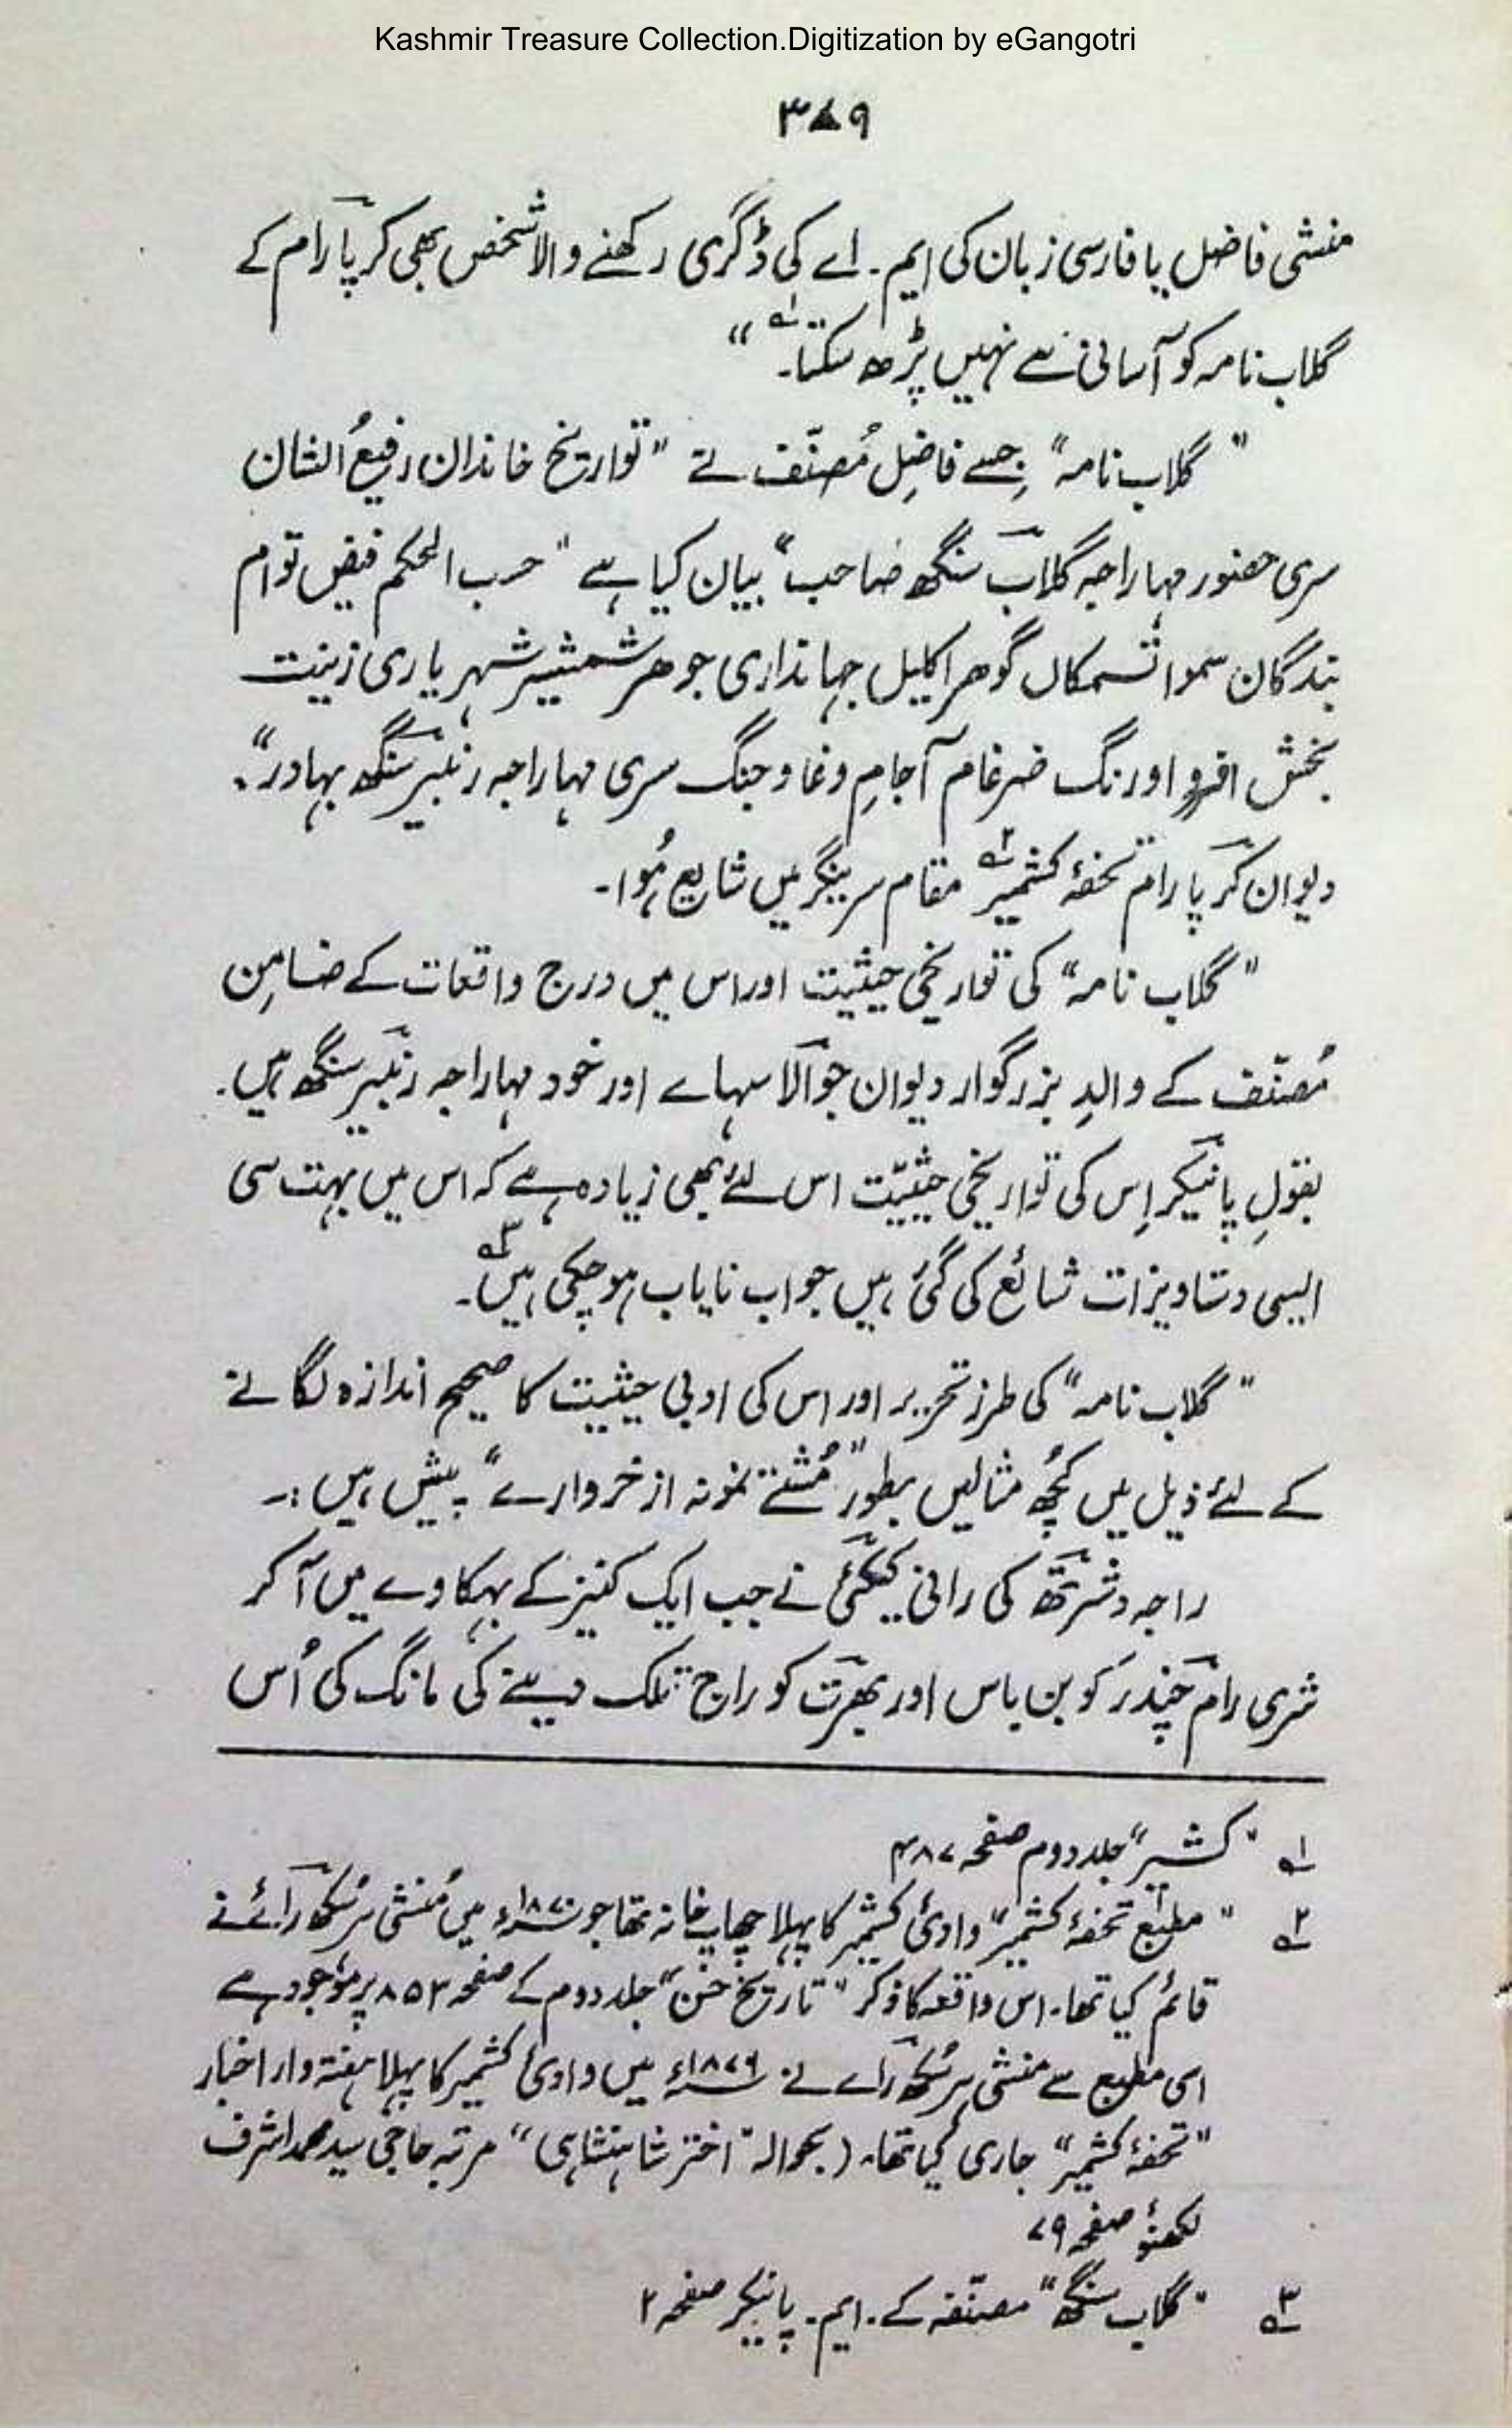 Kashmir Treasure Collection.Digitization by eGangotri
۳۸۹
منشی فاضل یا فارسی زبان کی ایم۔ اے کی ڈگری رکھنے والا شخص بھی کرپا رام کے
گلاب نامہ کو آسانی سے نہیں پڑھ سکتا۔۱؎ “
”گلاب نامہ“ جِسے فاضِل مُصنّف نے ”تواریخ خاندان رفیعُ الشان
سری حضور مہاراجہ گلاب سنگھ صاحب“ بیان کیا ہے ”حسب الحکم فیض توام
بندگان سموا تسمکاں گوھر اکلیل جہانداری جوھر شمشیر شہر یاری زینت
بخش افرو اورنگ ضرغام آجامِ وغا و جنگ سری مہاراجہ رنبیر سنگھ بہادر“۔
دیوان کرپا رام تحفۂ کشمیر۲؎ مقام سرینگر میں شایع ہُوا۔
”گلاب نامہ“ کی تواریخی حیثیت اور اس میں درج واقعات کے ضامِن
مُصنّف کے والدِ بزرگوار دیوان جوالا سہاے اور خود مہاراجہ رنبیر سنگھ ہیں۔
بقولِ پانیکر اِس کی تواریخی حیثیّت اس لئے بھی زیادہ ہے کہ اس میں بہت سی
ایسی دستاویزات شائع کی گئی ہیں جو اب نایاب ہو چکی ہیں۳؎۔
”گلاب نامہ“ کی طرز تحریر اور اس کی ادبی حیثیت کا صحیح اندازہ لگانے
کے لئے ذیل میں کُچھ مثالیں بطور ”مُشتے نمونہ از خروارے“ پیش ہیں :۔
راجہ دشرتھ کی رانی کیکئی نے جب ایک کنیز کے بہکاوے میں آ کر
شری رام چندر کو بن باس اور بھرت کو راج تلک دینے کی مانگ کی اُس
۱؎ ”کشیر“ جلد دوم صفحہ ۴۸۷
۲؎ ”مطبع تحفۂ کشمیر“ وادئ کشمیر کا پہلا چھاپ خانہ تھا جو ۱۸۷۰ء میں مُنشی ہرسُکھ رائے نے
قائم کیا تھا۔ اس واقعہ کا ذکر ”تاریخ حسن“ جلد دوم کے صفحہ ۸۵۲ پر موجود ہے
اسی مطبع سے منشی ہرسُکھ راے نے ۱۸۷۶ء میں وادئ کشمیر کا پہلا ہفتہ وار اخبار
”تحفۂ کشمیر“ جاری کیا تھا۔ (بحوالہ ”اختر شاہنشاہی“ مرتبہ حاجی سید محمد اشرف
لکھنؤ صفحہ ۷۹
۳؎ ”گلاب سنگھ“ مصنّفہ کے۔ ایم۔ پانیکر صفحہ ۲